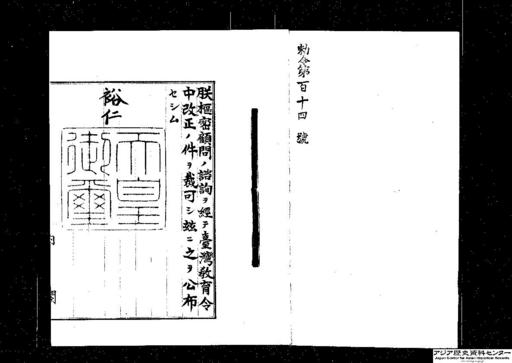 勅令第百十四號
朕樞密顧問ノ諮詢ヲ經テ臺灣教育令
中改正ノ件ヲ裁可シ玆ニ之ヲ公布
セシム
裕仁
天皇
御璽
内
閣
アジア歴史資料センター
Japan Center for Asian Historical Records